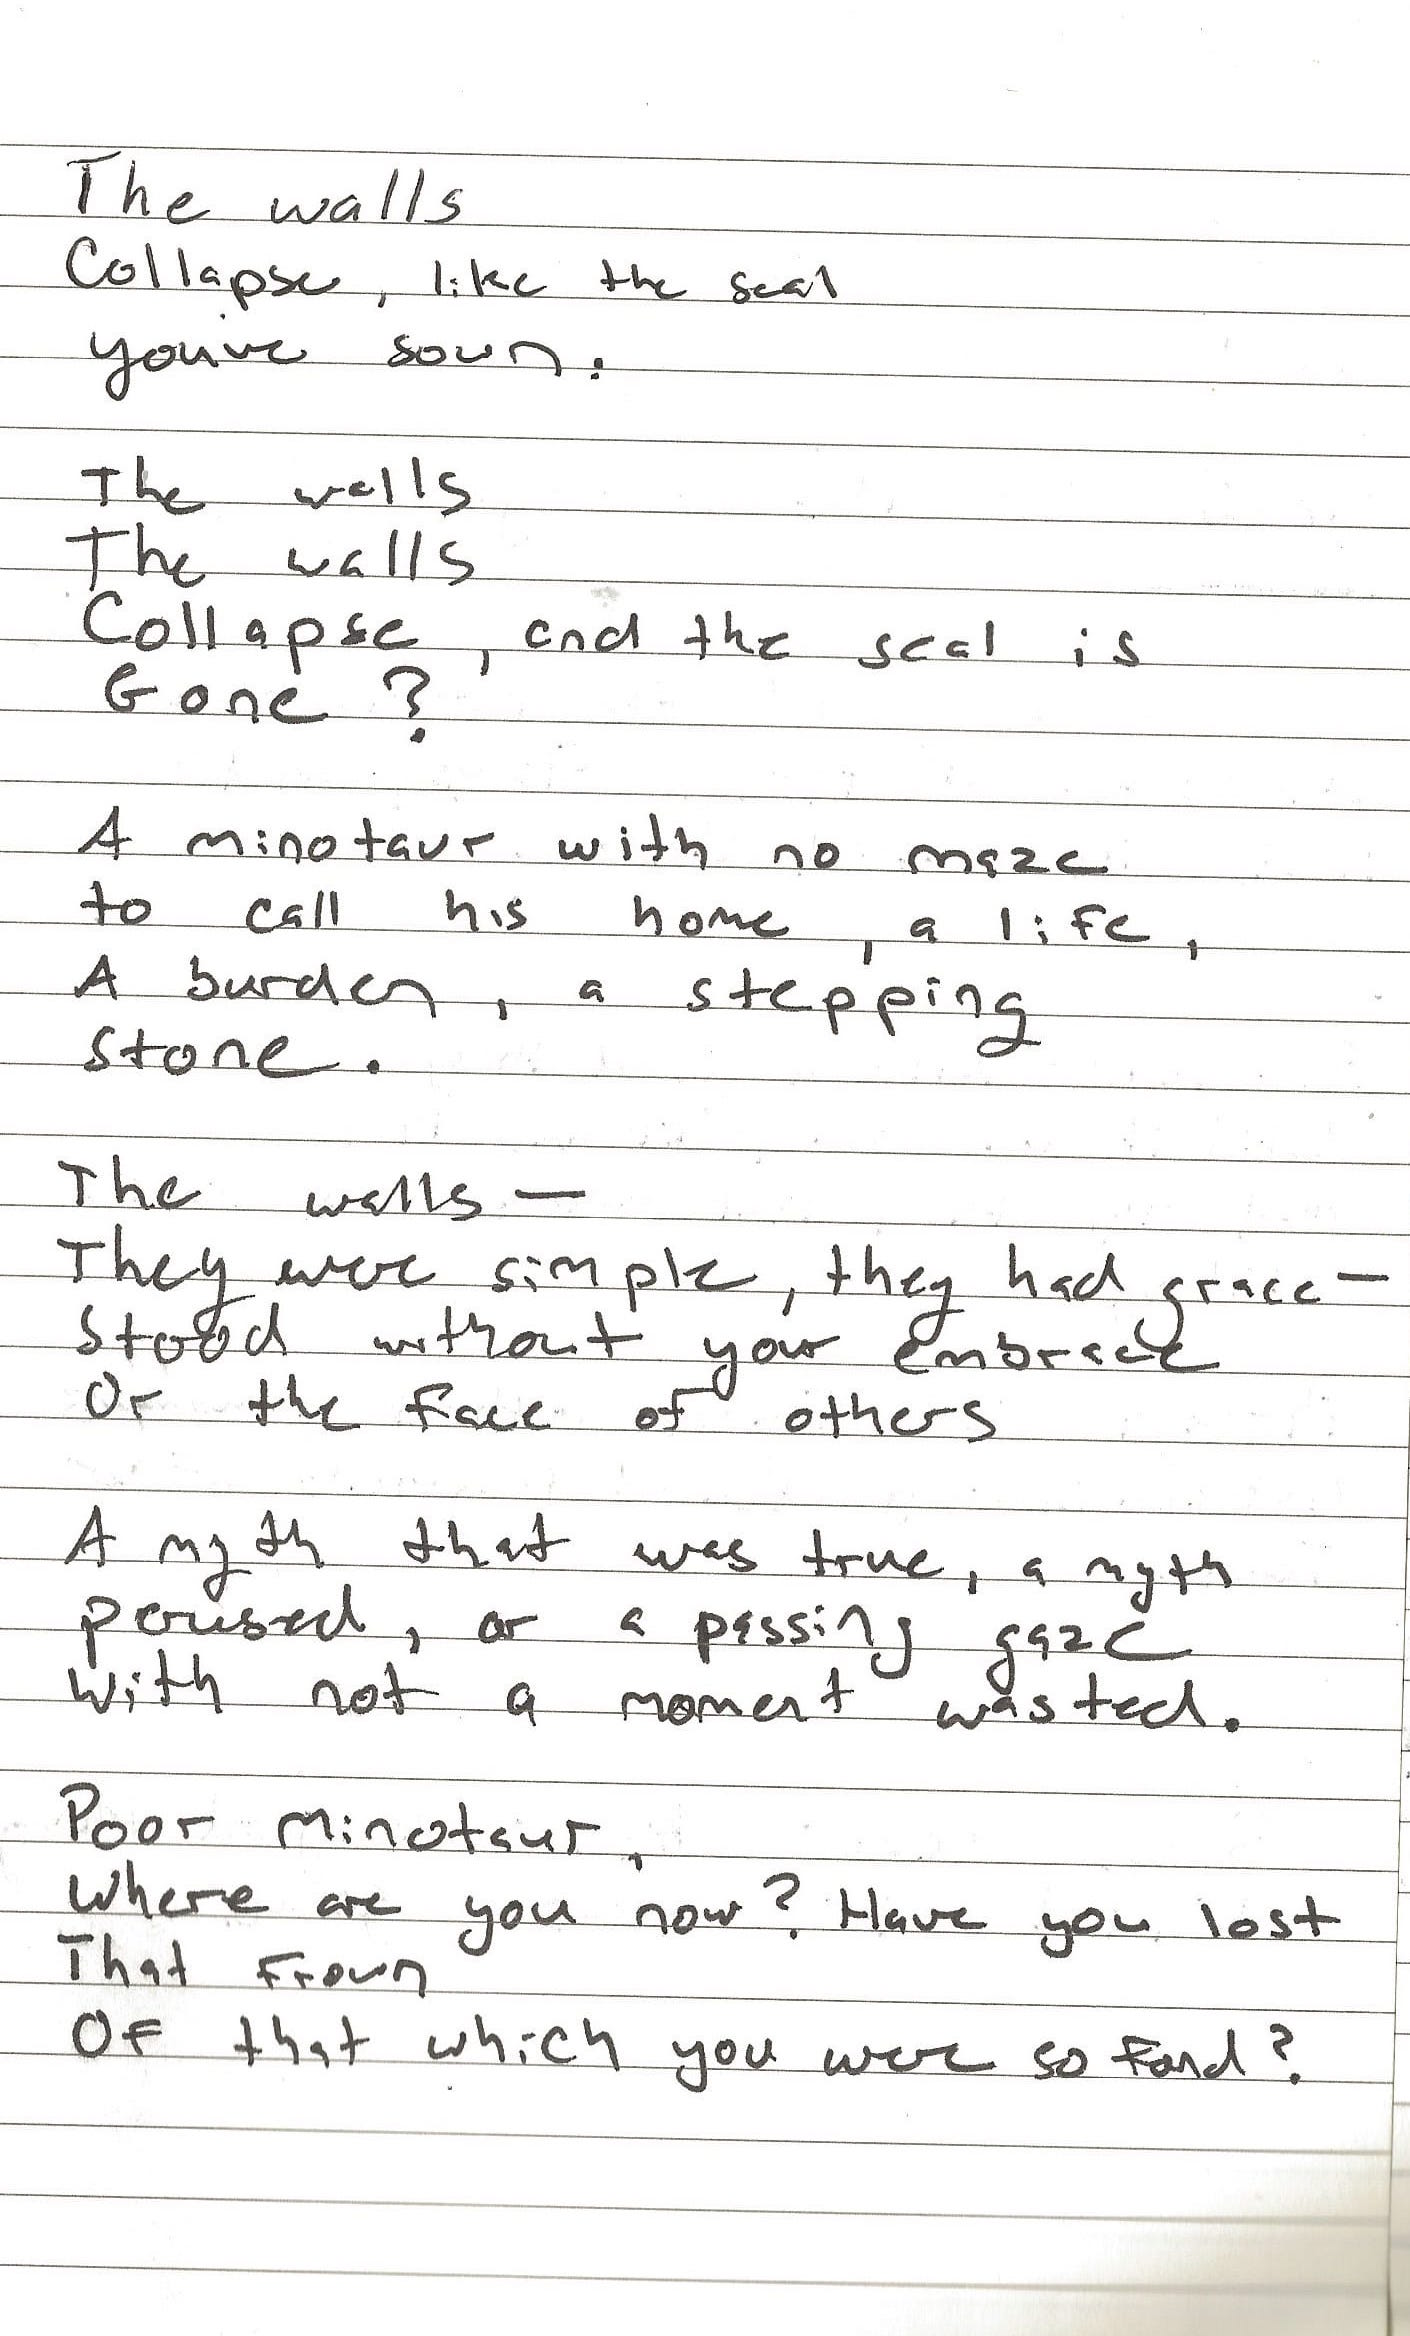 The walls
Collapse, like the seal
you've sown.
The walls
The walls
Collapse, and the seal is
Gone?
A minotaur with no maze
to call his home, a life,
A burden, a stepping
stone.
The walls —
They were simple, they had grace —
Stood without your embrace
Or the face of others
A myth that was true, a myth
perused, or a passing gaze
With not a moment wasted.
Poor Minotaur,
Where are you now? Have you lost
That Frown
Of that which you were so fond?